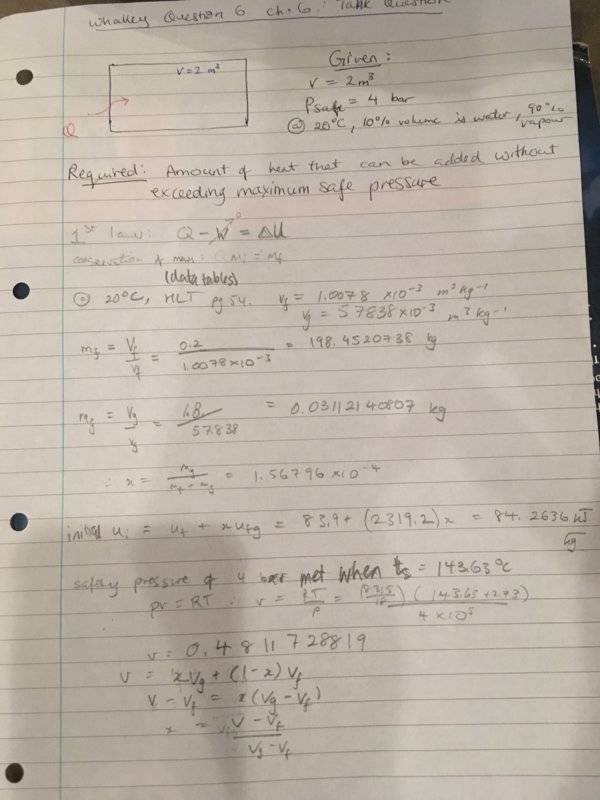 Whalley Question 6 ch. 6: Tank Question
V = 2 m³
Q
Given:
V = 2m³
Psafe = 4 bar
@ 20°C, 10% volume is water, 90% vapour
Required: Amount of heat that can be added without
exceeding maximum safe pressure
1st law: Q - W→0 = ΔU
conservation of mass: mi = mf
(data tables)
@ 20°C, HLT pg 54. vf = 1.0078 × 10⁻³ m³ kg⁻¹
vg = 57838 × 10⁻³ m³ kg⁻¹
mf = Vf/vf = 0.2/1.0078×10⁻³ = 198.4520738 kg
mg = Vg/vg = 1.8/57.838 = 0.03112140807 kg
∴ x = mg/mf + mg = 1.56796 × 10⁻⁴
initial ui = uf + x ufg = 83.9 + (2319.2)x = 84.2636 kJ/kg
safety pressure of 4 bar met when ts = 143.63°C
pv = RT ∴ v = RT/p = (8315/18)(143.63+273)/4 × 10⁵
v = 0.4811728819
v = xvg + (1-x)vf
v - vf = x(vg - vf)
x = v - vf/vg - vf